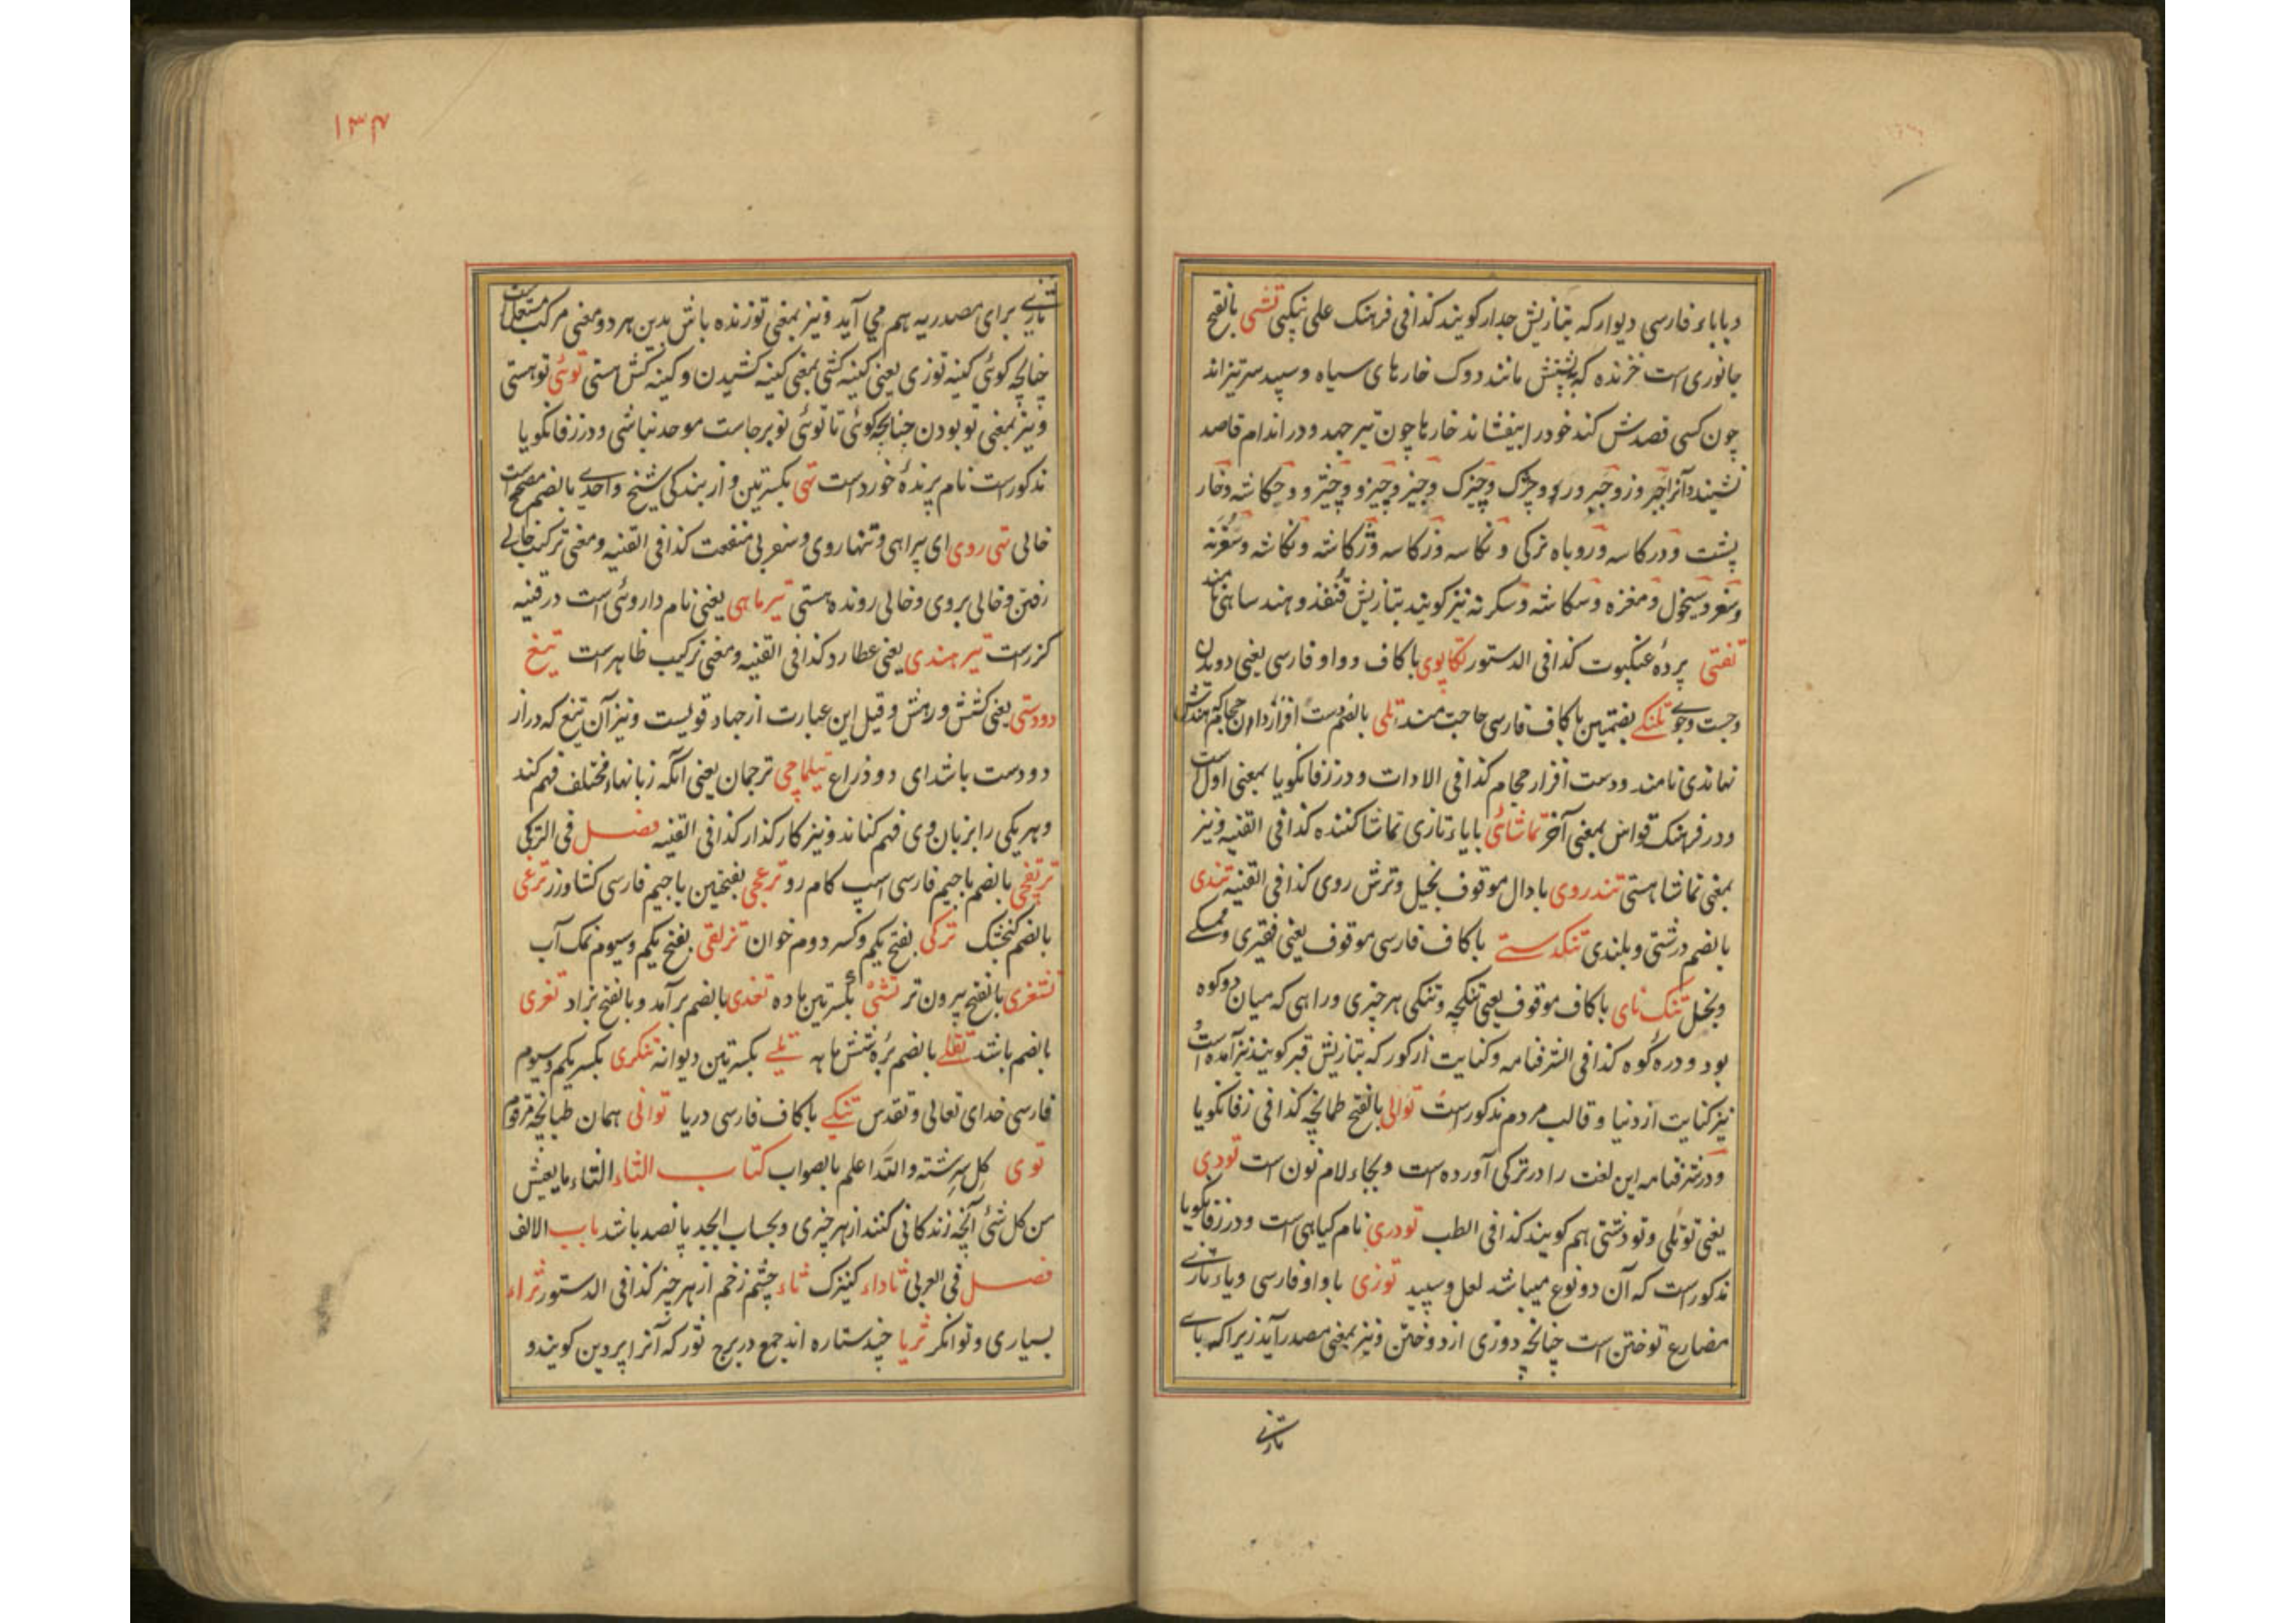 و باباء فارسی دیوار که بتازیش جدار کویند کذا فی فرهنک علی نیکپی تشی بالفتح
جانوری است خزنده که پشتش مانند دوک خارهای سیاه و سپید سر تیز اند
چون کسی قصدش کند خود را بیفشاند خارها چون تیر جهد و در اندام قاصد
نشیند و آنرا
پشت و روباه ترکی و
قنفذ و هند ساهی نامند
تفتی پرده عنکبوت کذا فی الدستور تکاپوی با کاف و واو فارسی یعنی دویدن
و جست و جوی تلنکی بضمتین با کاف فارسی حاجت مند تلی بالضم دست افزاردان حجام که هندش
نهاندی نامند و دست افزار حجام کذا فی الادات و در زفانکویا بمعنی اول است
و در فرهنک قواس بمعنی آخر تماشائی بایاء تازی تماشا کننده کذا فی القنیه و نیز
بمعنی تماشا هستی تند روی با دال موقوف بخیل و ترش روی کذا فی القنیه تندی
بالضم درشتی و بلندی تنکدستی با کاف فارسی موقوف یعنی فقیری و ممسکی
و بخل تنک نای با کاف موقوف یعنی تنکچه و تنکی هر چیزی و راهی که میان دو کوه
بود و دره کوه کذا فی الشرفنامه و کنایت از کور که بتازیش قبر کویند نیز آمده است
نیز کنایت از دنیا و قالب مردم مذکور است توالی بالفتح طمانچه کذا فی زفانکویا
و در شرفنامه این لغت را در ترکی آورده است و بجاء لام نون است تودی
یعنی توتلی و تودشتی هم کویند کذا فی الطب تودری نام کیاهی است و در زفانکویا
مذکور است که آن دو نوع میباشد لعل و سپید توزی با واو فارسی و یاء تازی
مضارع توختن است چنانچه دوزی از دوختن و نیز بمعنی مصدر آید زیرا که یای
تازی
۱۳۴
تازی برای مصدریه هم می آید و نیز بمعنی توزنده باش بدین هر دو معنی مرکب مستعمل است
چنانچه کوئی کینه توزی یعنی کینه کشی بمعنی کینه کشیدن و کینه کش هستی توئی تو هستی
و نیز بمعنی تو بودن چنانچه کوئی تا توئی تو برجاست موحد نباشی و در زفانکویا
مذکور است نام پرنده خورد است تهی بکسرتین و از بندکی شیخ واحدی بالضم مصحح است
خالی تهی روی ای بیراهی و تنها روی و سفر بی منفعت کذا فی القنیه و معنی ترکیب خالی
رفتن و خالی بروی و خالی رونده هستی تیر ماهی یعنی نام داروئی است در قنیه
کزر است تیر هندی یعنی عطارد کذا فی القنیه و معنی ترکیب ظاهر است تیغ
دودستی یعنی کشش و رهش و قیل این عبارت از جهاد قویست و نیز آن تیغ که دراز
دو دست باشد ای دو ذراع تیلماچی ترجمان یعنی آنکه زبانهاء مختلف فهم کند
و هر یکی را بزبان وی فهم کناند و نیز کار کذار کذا فی القنیه فصل فی الترکی
ترتقچی بالضم با جیم فارسی اسپ کام رو ترعچی بفتحتین با جیم فارسی کشاورز ترغی
بالضم کنجشک ترکی بفتح یکم و کسر دوم خوان تزلقی بفتح یکم و سیوم نمک آب
تشغری بالفتح بیرون تر تشئ بکسرتین ماده تغدی بالضم برآمد و بالفتح بزاد تغری
بالضم باشد تقلی بالضم بره شش ماهه تیلی بکسرتین دیوانه تنکری بکسر یکم و سیوم
فارسی خدای تعالی و تقدس تنکیر با کاف فارسی دریا توانی همان طبانچه مرقوم
توی کل سرشته والله اعلم بالصواب کتاب الثاء الثاء ما یعیش
من کل شئ آنچه زندکانی کنند از هر چیزی و بحساب ابجد پانصد باشد باب الالف
فصل فی العربی ثاداء کنیزک ثاء چشم زخم از هر چیز کذا فی الدستور ثراء
بسیاری و توانکر ثریا چند ستاره اند جمع در برج ثور که آنرا پروین کویند و